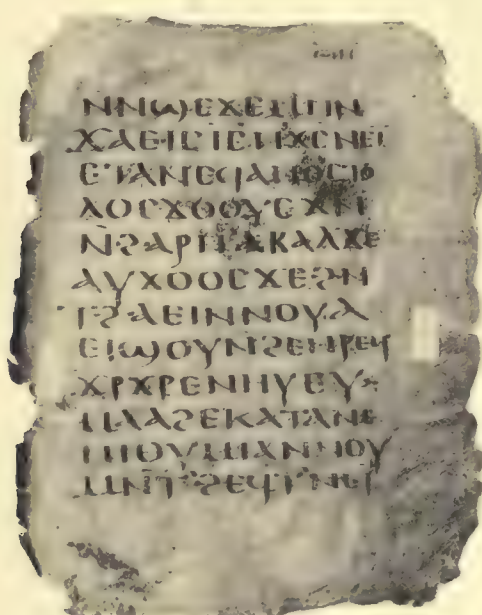 ⲛⲛϣⲉϫⲉⲙⲡⲛ
ϫⲁⲉⲓⲥⲓⲥⲡⲭⲥⲛⲉⲓ
ⲉⲧⲁⲛⲉϥⲁⲡⲟⲥⲧⲟ
ⲗⲟⲥϫⲟⲟⲩⲉϫⲛ
ⲛϩⲁⲣⲡ
ⲁⲩϫⲟⲟⲥϫⲉϩⲛ
ⲧϩⲁⲉⲓⲛⲛⲟⲩⲁ
ⲉⲓϣⲟⲩⲛϩⲉⲛⲣⲉϥ
ϫⲣϫⲣⲉⲛⲏⲩⲉⲩ
ⲙⲁⲁϩⲉⲕⲁⲧⲁⲛⲉ
ⲡⲓⲑⲩⲙⲓⲁⲛⲛⲟⲩ
ⲙⲛⲧϩⲉϥⲧⲛⲉⲓ